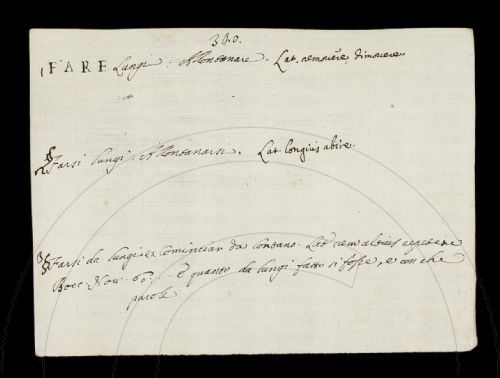 360.
1 FARE Lungi: Allontanare. Lat. removere, dimovere
2 § Farsi lungi: Allontanarsi. Lat. longius abire.
3 § Farsi da lungi e Cominciar da lontano. Lat. rem altius repetere
Bocc. Nov. 60. E quanto da lungi fatto si fosse, e con che
parole